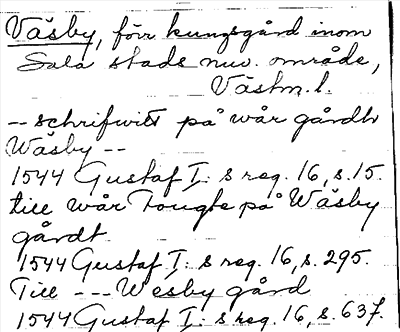 Väsby, förr kungsgård inom
Sala stads nuv. område,
Västm. l.
-- schrifwitt på wår gårdh
Wäsby --
1544 Gustaf I: s reg. 16, s. 15.
till wår Fougte på Wäsby
gårdt.
1544 Gustaf I: s reg. 16, s. 295.
Till --- Wesby gård
1544 Gustaf I: s reg. 16, s. 637.